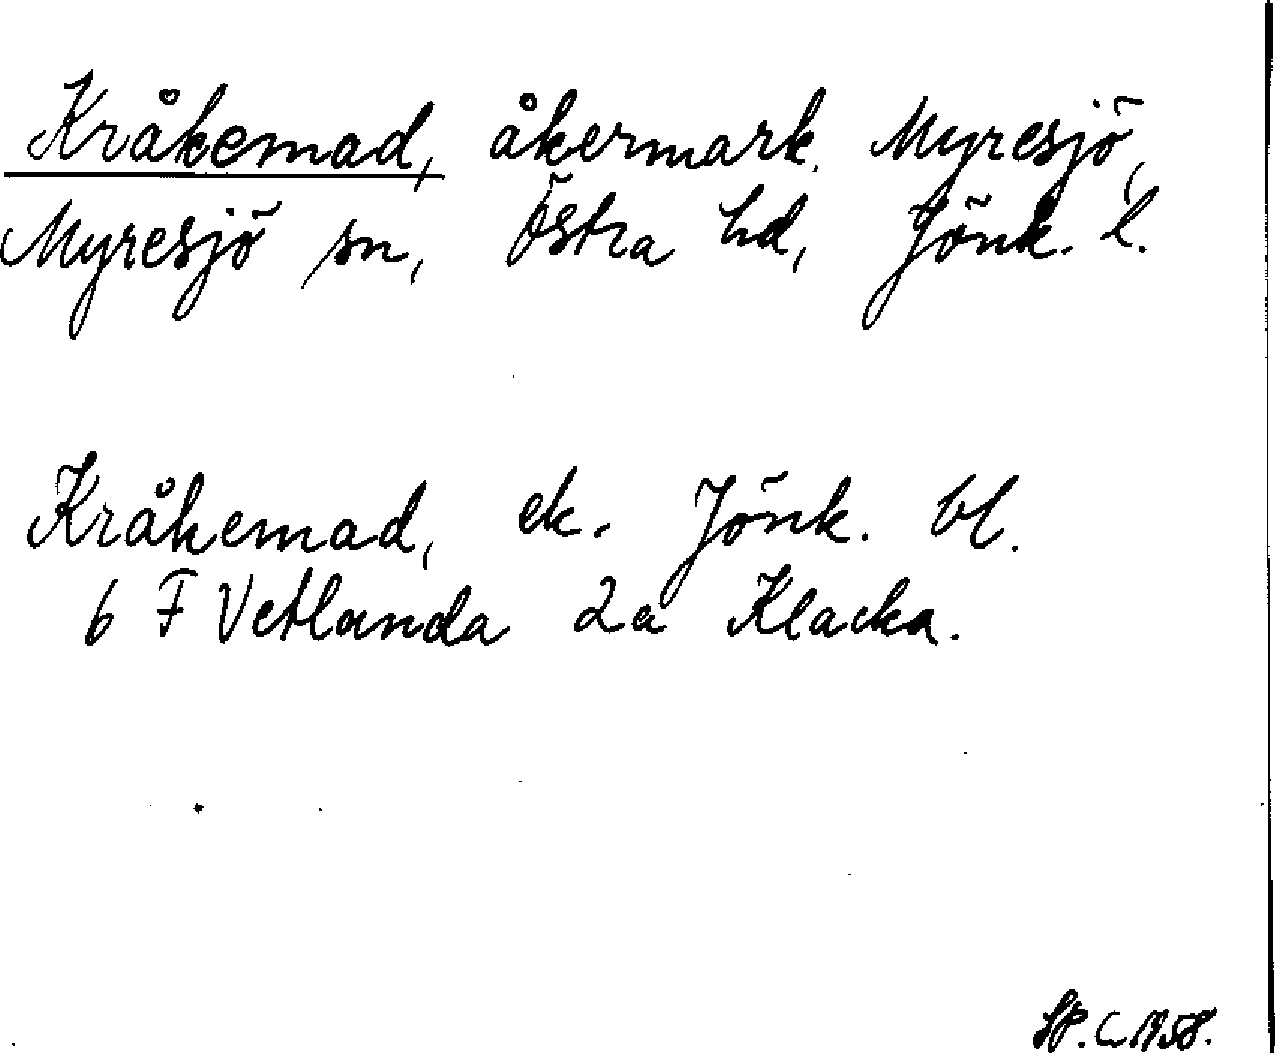 Kråkemad, åkermark. Myresjö,
Myresjö sn, Östra hd, Jönk. l.
Kråkemad, ek. Jönk. bl.
6 F Vetlanda 2a Klacka.
1958.